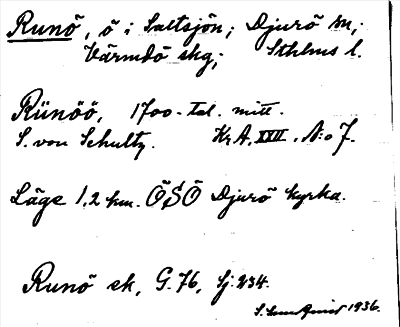 Runö, ö i Saltsjön; Djurö sn,;
Värmdö skg; Sthlms l.
Rünöö, 1700-tal. mitt.
S. von Schultz. KrA. XXII. N:o 7.
Läge 1,2 km. ÖSÖ Djurö kyrka.
Runö ek, G. 76, Sj. 234.
1936.